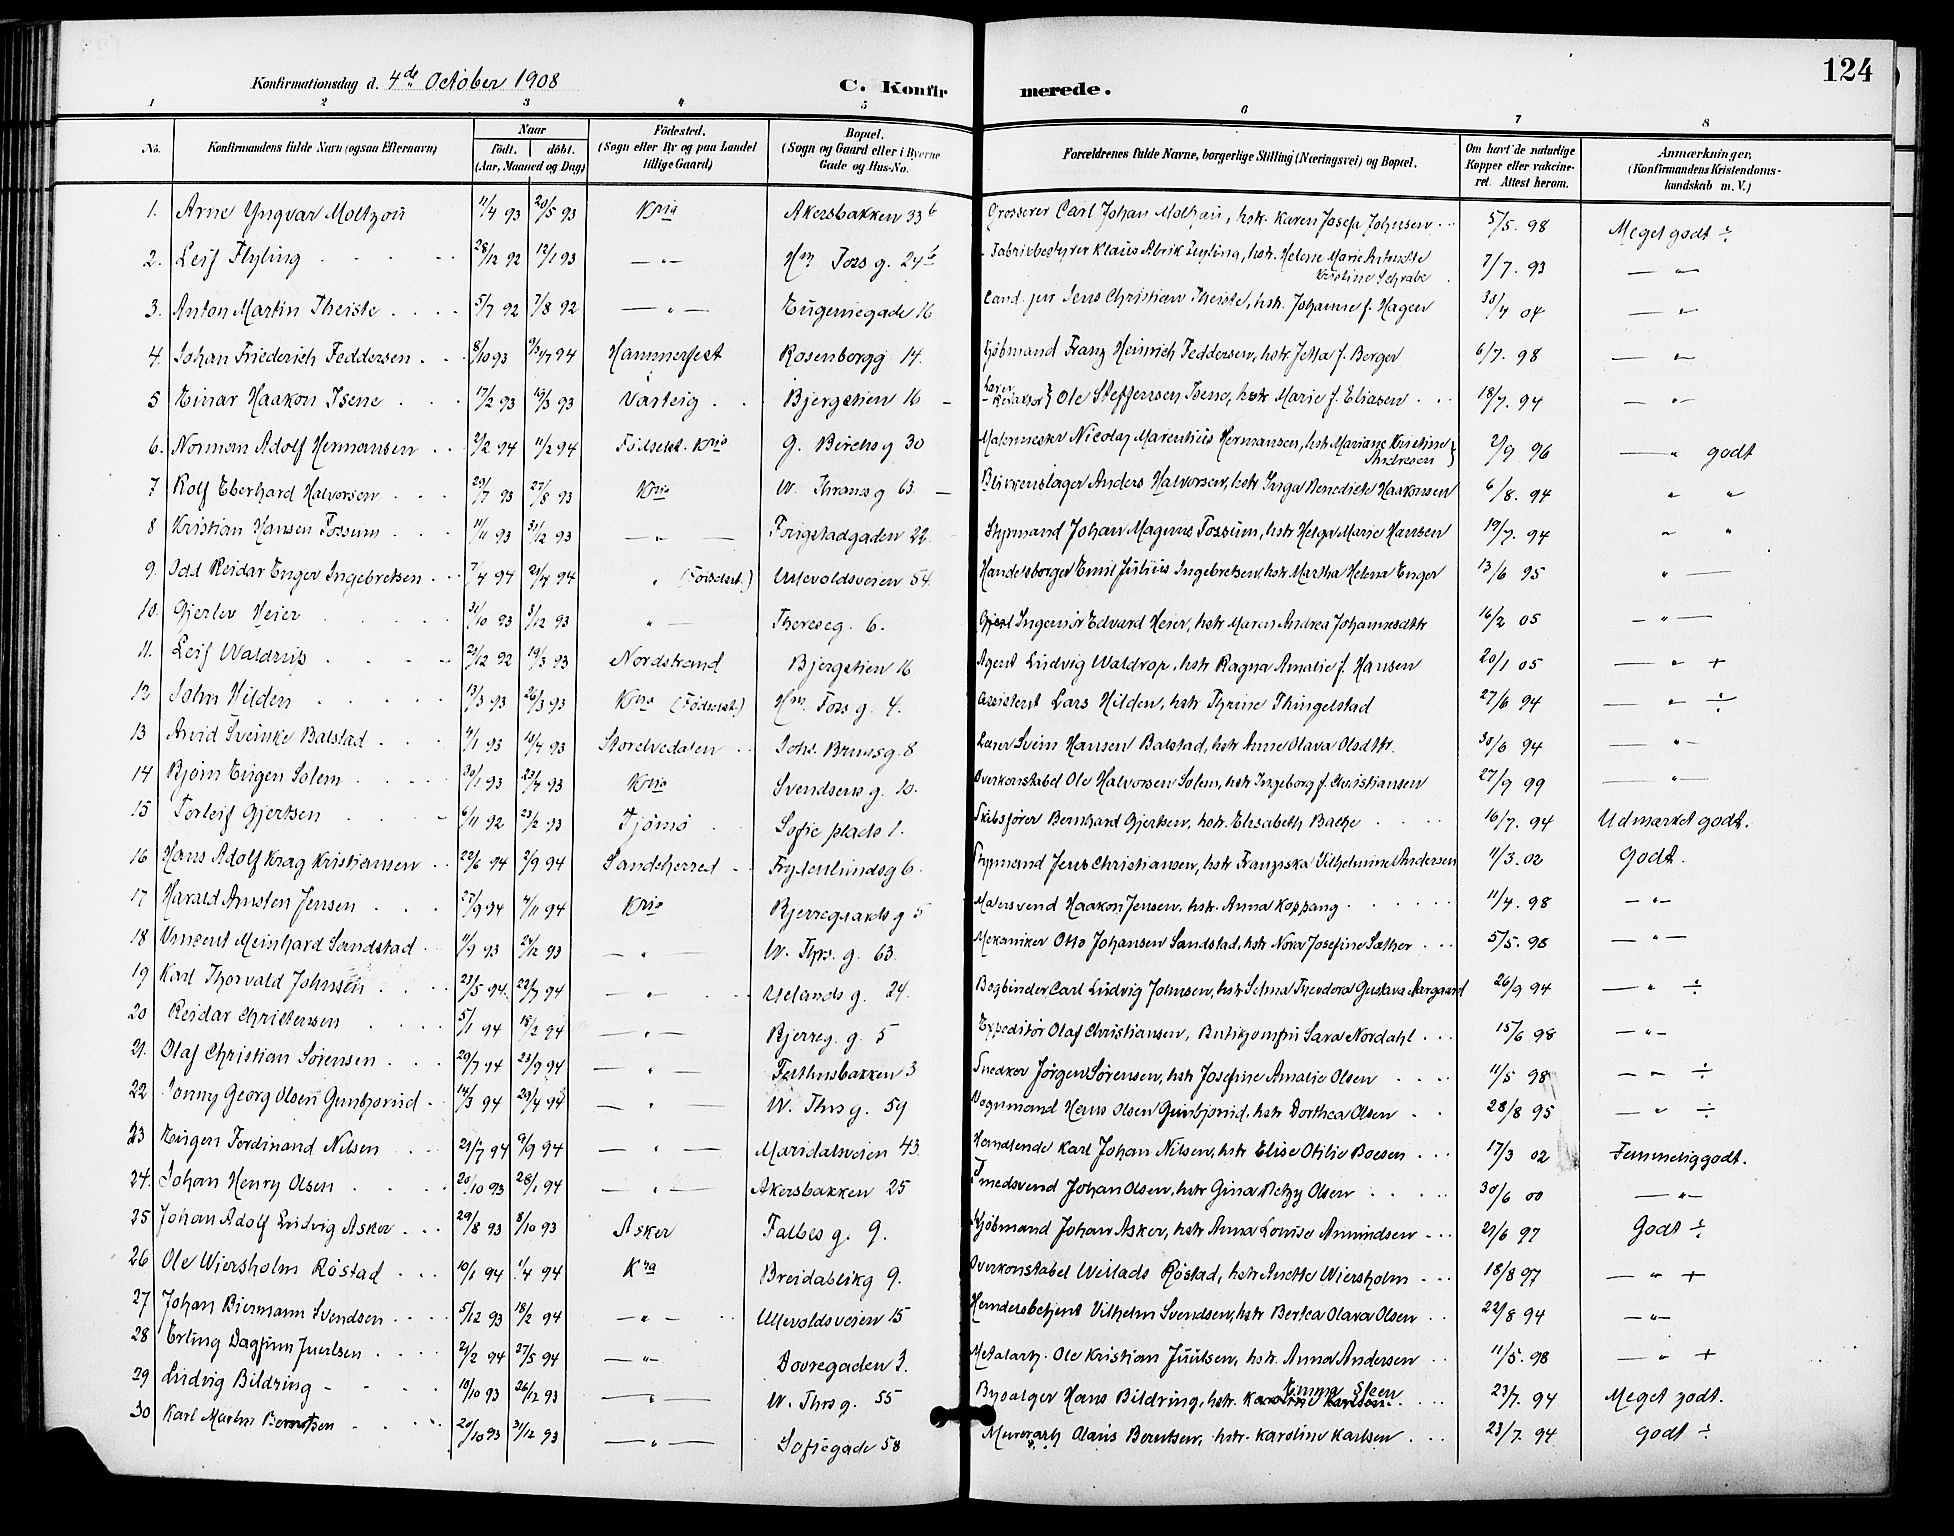 124
Konfirmationsdag d. 4de October 1908 C. Konfirmerede.
1 2 3 4 5 6 7 8
No. Konfirmandens fulde Navn (ogsaa Efternavn) Naar født. døbt. (Aar, Maaned og Dag) Fødested. (Sogn eller By og paa Landet tillige Gaard) Bopæl. (Sogn og Gaard eller i Byerne Gade og Hus-No. Forældrenes fulde Navne, borgerlige Stilling (Næringsvei) og Bopæl. Om havt de naturlige Kopper eller vaccineret. Attest herom. Anmærkninger. (Konfirmandens Kristendomskundskab m. V.)
1. Arne Yngvar Moltzau 11/4 93 28/5 93 Kria Akersbakken 33b Grosserer Carl Johan Moltzau, hstr. Karen Josefa Johnsen 5/5. 98 Meget godt ÷
2. Leif Flyling 28/12 92 12/1 93 — " — Hm Foss g. 24b Fabrikbestyrer Klaus Alrik Flyling, hstr. Helene Marie Antonette Kristine Schrabe 7/7. 93 — " —
3. Anton Martin Theiste 5/7 92 7/8 92 — " — Eugeniegade 16 Cand. jur Jens Christian Theiste, hstr. Johanne f. Hagen 30/4 04 — " —
4. Johan Friederich Feddersen 8/10 93 94 Hammerfest Rosenborgg 14. Kjøbmand Franz Heinrich Feddersen, hstr Jetta f. Berger 6/7. 98 — " —
5 Einar Haakon Isene 17/2 93 10/3 93 Varteig Bjergstien 16 Lærer Redaktør } Ole Steffensen Isene, hstr Marie f. Eliasen 18/7. 94 — " —
6. Norman Adolf Hermansen 2/2 94 11/2 94 Fødselst. Kria G. Birchs g 30 Malermester Nicolay Marentius Hermansen, hstr Mariane Kristine Andresen } 2/9 96 — " godt
7 Rolf Eberhard Halvorsen 29/7 93 27/8 93 Kria W. Thransg 63 Blikkenslager Anders Halvorsen, hstr Inga Benedicte Haakonsen 6/8. 94 " "
8 Kristian Hansen Fossum 11/11 93 31/12 93 — " — Frigstadgaden 22 Styrmand Johan Magnus Fossum, hstr Helga Marie Hansen 19/7. 94 " "
9. Odd Reidar Enger Ingebretsen 7/4 94 29/4 94 " (Fødselsst.) Ullevoldsveien 54. Handelsborger Emil Julius Ingebretsen, hstr Martha Helena Enger 13/6 95 " —
10. Gjerlev Heier 31/10 93 3/12 93 " — Thereseg. 6. Ingeniør Edvard Heier, hstr Maren Andrea Johannesdtr 16/2 05 — " —
11. Leif Waldrup 29/12 92 19/3 93 Nordstrand Bjergstien 16 Agent Ludvig Waldrop, hstr Ragna Amalie f. Hansen 20/1 05 — " +
12 John Hilden 13/3 93 26/3 93 Kria (Fødselsst.) Hm Foss g. 4. Assistent Lars Hilden, hstr Thrine Thingelstad 27/6 94 — " ÷
13 Arvid Sveinke Balstad 4/1 93 19/4 93 Storelvedalen Johs. Brunsg. 8 Lærer Svein Hansen Balstad, hstr Anne Olava Olsdtr. 30/6 94 — " —
14 Bjørn Eugen Solem 30/1 93 23/4 93 Kria Svendsens g. 10. Overkonstabel Ole Halvorsen Solem, hstr Ingeborg f. Christiansen 27/9 99 — " —
15 Torleif Gjertsen 6/11 92 23/2 93 Tjømø Sofie plads 1. Skibsfører Bernhard Gjertsen, hstr. Elisabeth Bache 16/7. 94 Udmærket godt.
16 Hans Adolf Krag Kristiansen 22/6 94 2/9 94 Sandeherred Frydenlundsg 6. Styrmand Jens Christiansen, hstr Franziska Vilhelmine Andersen 11/3-02 Godt.
17 Harald Arnsten Jensen 27/9 94 4/11 94 Kria Bjerregaardsg 5 Malersvend Haakon Jensen, hstr. Anna Koppang 11/4. 98 — " —
18 Vincent Meinhard Sandstad 11/9 93 24/12 93 — " — W. Thrs. g. 63. Mekaniker Otto Johansen Sandstad, hstr Nora Josefine Sæther 5/5. 98 — " —
19 Karl Thorvald Johnsen 23/5 94. 22/7 94 — " — Uelands g. 24. Bogbinder Carl Ludvig Johnsen, hstr Selma Theodora Gustava Aargaard 26/9 94 — " ÷
20 Reidar Christensen 5/1 94 18/2 94 — " — Bjerreg. g. 5 Expeditør Olaf Christiansen, Butikjomfru Sara Nordahl 15/6 98 — " —
21. Olaf Christian Sørensen 29/7 94 23/9 94 — " — Telthusbakken 3 Snedker Jørgen Sørensen, hstr Josefine Amalie Olsen 11/5 98 — " ÷
22 Conny Georg Olsen Gunbjørud 14/3 94 29/4 94 — " — W. Thrs g. 59 Vognmand Hans Olsen Gunbjørud, hstr Dorthea Olsen 28/8 95 — " ÷
23 Eugen Ferdinand Nilsen 29/7 94 9/9 94 — " — Maridalsveien 43. Handlende Karl Johan Nilsen, hstr Elise Otilie Boesen 17/3 02 Temmelig godt.
24. Johan Henry Olsen 20/10 93 28/1 94 — " — Akersbakken 25 Smedsvend Johan Olsen, hstr Gina Betzy Olsen 30/6 00 — " —
25 Johan Adolf Ludvig Asker 29/8 93 8/10 93 Asker Falbes g. 9. Kjøbmand Johan Asker, hstr Anna Louise Amundsen 29/6 97 Godt ÷
26 Ole Wiersholm Røstad 10/1 94 1/4 94 Kria Breidablikg 9. Overkonstabel Røstad, hstr Anette Wiersholm 18/8 97 — " +
27 Johan Biermann Svendsen 5/12 93 18/2 94 — " — Ullevoldsveien 15 Handelsbetjent Vilhelm Svendsen, hstr Bertea Olava Olsen 22/8 94 — " —
28 Erling Dagfinn Juulsen 21/2 94 27/5 94 — " — Dovregaden 3. Metalarb. Ole Kristian Juulsen, hstr. Anna Andersen 11/5. 98 — " +
29 Ludvig Bildring 18/10 93 26/12 93 — " — W. Thrs g. 55 Bysælger Hans Bildring, hstr. Karoline Karlsen. Emma Steen 23/7. 94 Meget godt.
30 Karl Martin Berntsen 20/10 93 31/12 93 — " — Sofiegade 58 Murerarb Olaus Berntsen, hstr. Karoline Karlsen 23/7. 94 godt ÷